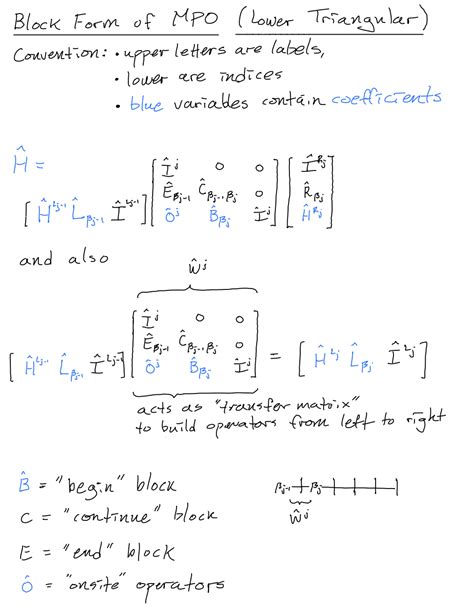 Block Form of MPO (Lower Triangular)
Convention: • upper letters are labels,
• lower are indices
• blue variables contain coefficients
Ĥ =
[ Ĥ^{L_{j-1}} L̂_{β_{j-1}} Î^{L_{j-1}} ] [ Î^j 0 0 ; Ê_{β_{j-1}} Ĉ_{β_{j-1},β_j} 0 ; Ô^j B̂_{β_j} Î^j ] [ Î^{R_j} ; R̂_{β_j} ; Ĥ^{R_j} ]
and also
Ŵ^j
[ Ĥ^{L_{j-1}} L̂_{β_{j-1}} Î^{L_{j-1}} ] [ Î^j 0 0 ; Ê_{β_{j-1}} Ĉ_{β_{j-1},β_j} 0 ; Ô^j B̂_{β_j} Î^j ] = [ Ĥ^{L_j} L̂_{β_j} Î^{L_j} ]
acts as "transfer matrix"
to build operators from left to right
B̂ = "begin" block
C = "continue" block
E = "end" block
Ô = "onsite" operators
β_{j-1} β_j
Ŵ^j